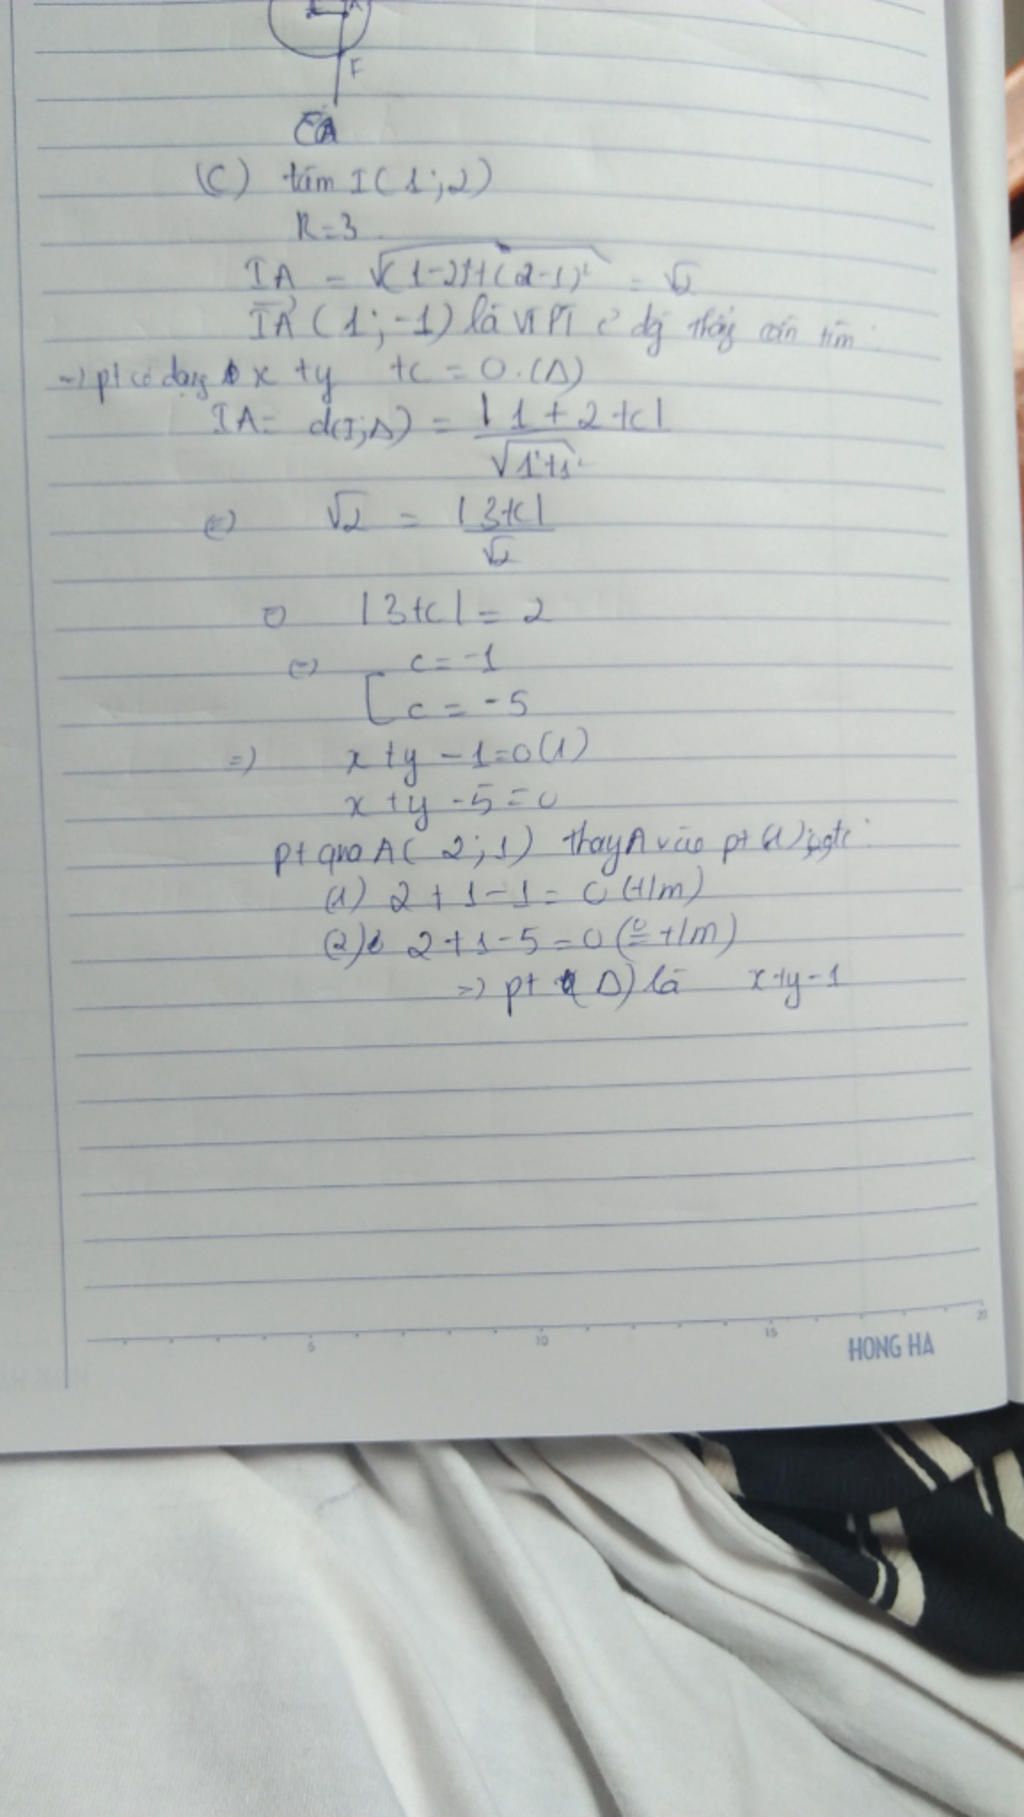 F
(C) tâm I(1;2)
R=3
IA = √(1-2)²+(2-1)² = √2
IA (1;-1) là VTPT đg thẳng cần tìm
=> pt có dạng x +y +c = 0. (Δ)
IA = d(I;Δ) = |1+2+c| / √1²+1²
(=) √2 = |3+c| / √2
|3+c| = 2
(=) [ c = -1
c = -5
=) x+y -1=0(1)
x+y-5=0
pt qua A(2;1) thay A vào pt (1)
(1) 2+1-1=0 (t/m)
(2) 2+1-5=0 ( t/m)
=> pt (Δ) là x+y-1
5 10 15 20
HONG HA